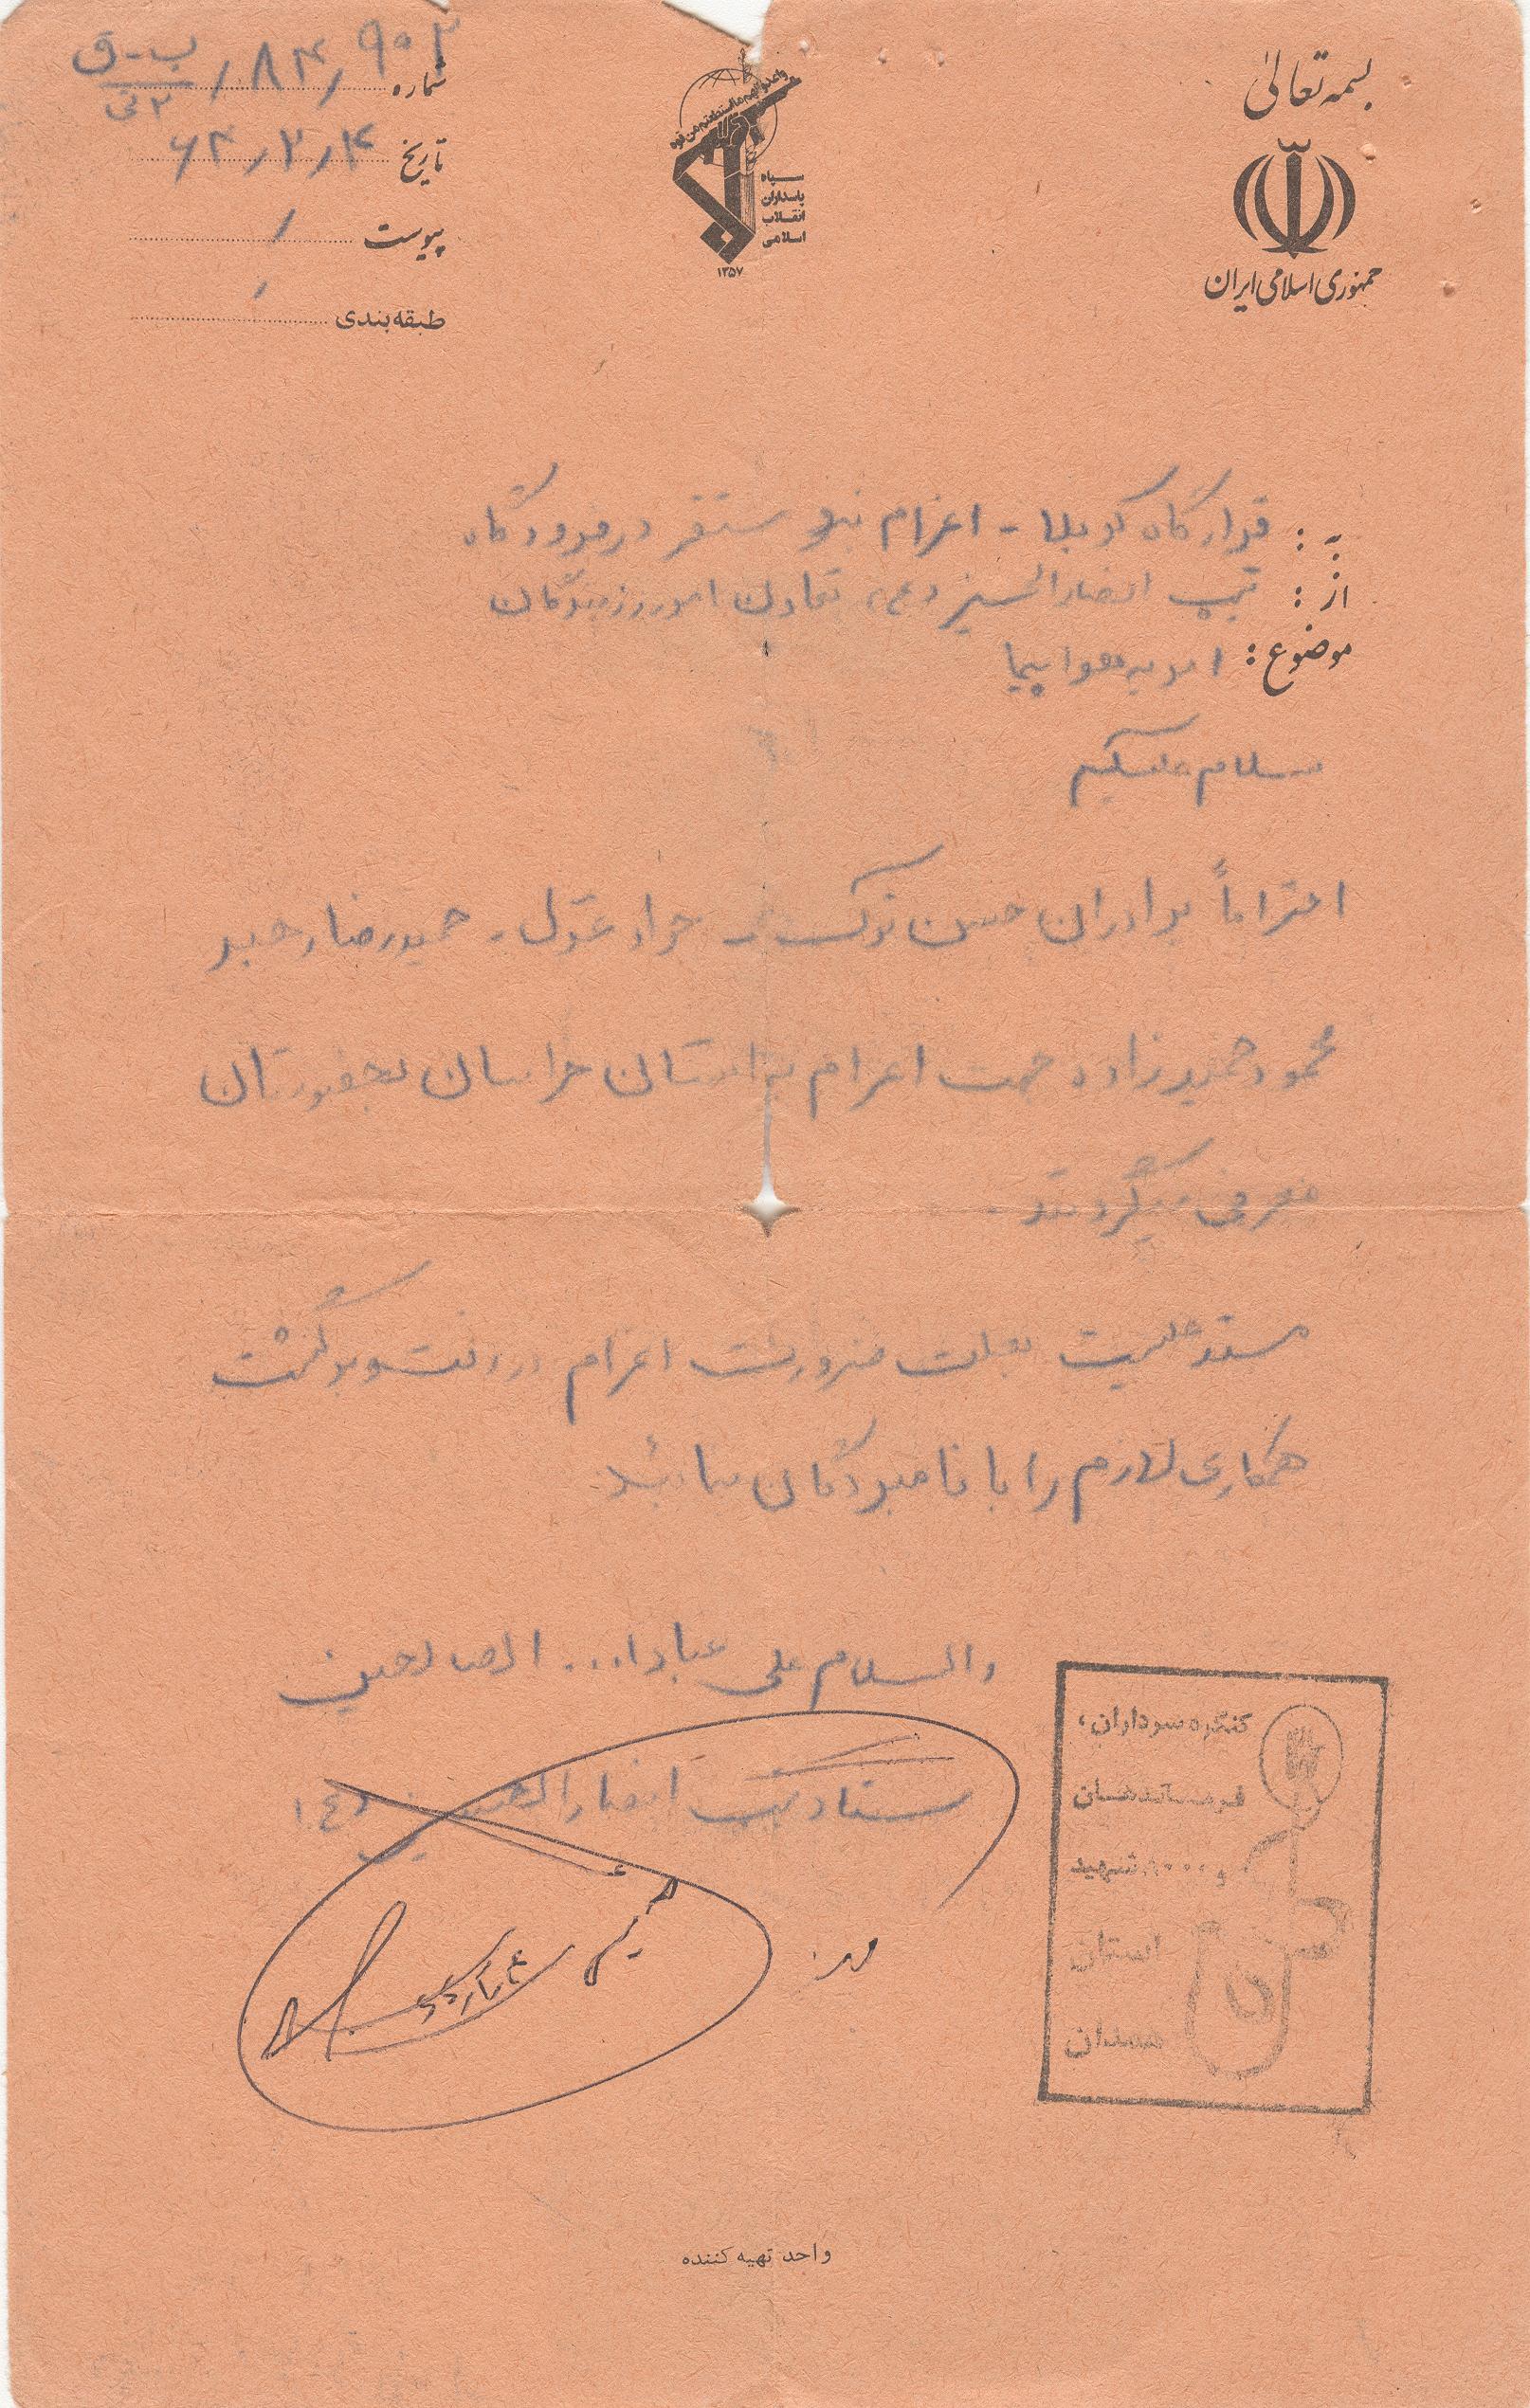 بسمه تعالی
جمهوری اسلامی ایران
واعدوا لهم ما استطعتم من قوة
سپاه
پاسداران
انقلاب
اسلامی
۱۳۵۷
شماره ۹۰۲ / ۸۴ / ب-ق
تاریخ ۶۴/۲/۴
پیوست /
طبقه‌بندی
به : قرارگاه کربلا - اعزام نیرو مستقر در فرودگاه
از : تیپ انصارالحسین (ع) تعاون امور رزمندگان
موضوع : امریه هواپیما
سلام علیکم
احتراماً برادران حسن - جواد - حمیدرضا
محمود حمیدزاده جهت اعزام به استان خراسان بحضورتان
معرفی میگردند .
مستدعیست بعلت ضرورت اعزام در رفت و برگشت
همکاری لازم را با نامبردگان بنمائید
والسلام علی عبادا... الصالحین
ستاد تیپ انصارالحسین (ع)
کنگره سرداران،
فرماندهان
و ۸۰۰۰ شهید
استان
همدان
واحد تهیه کننده